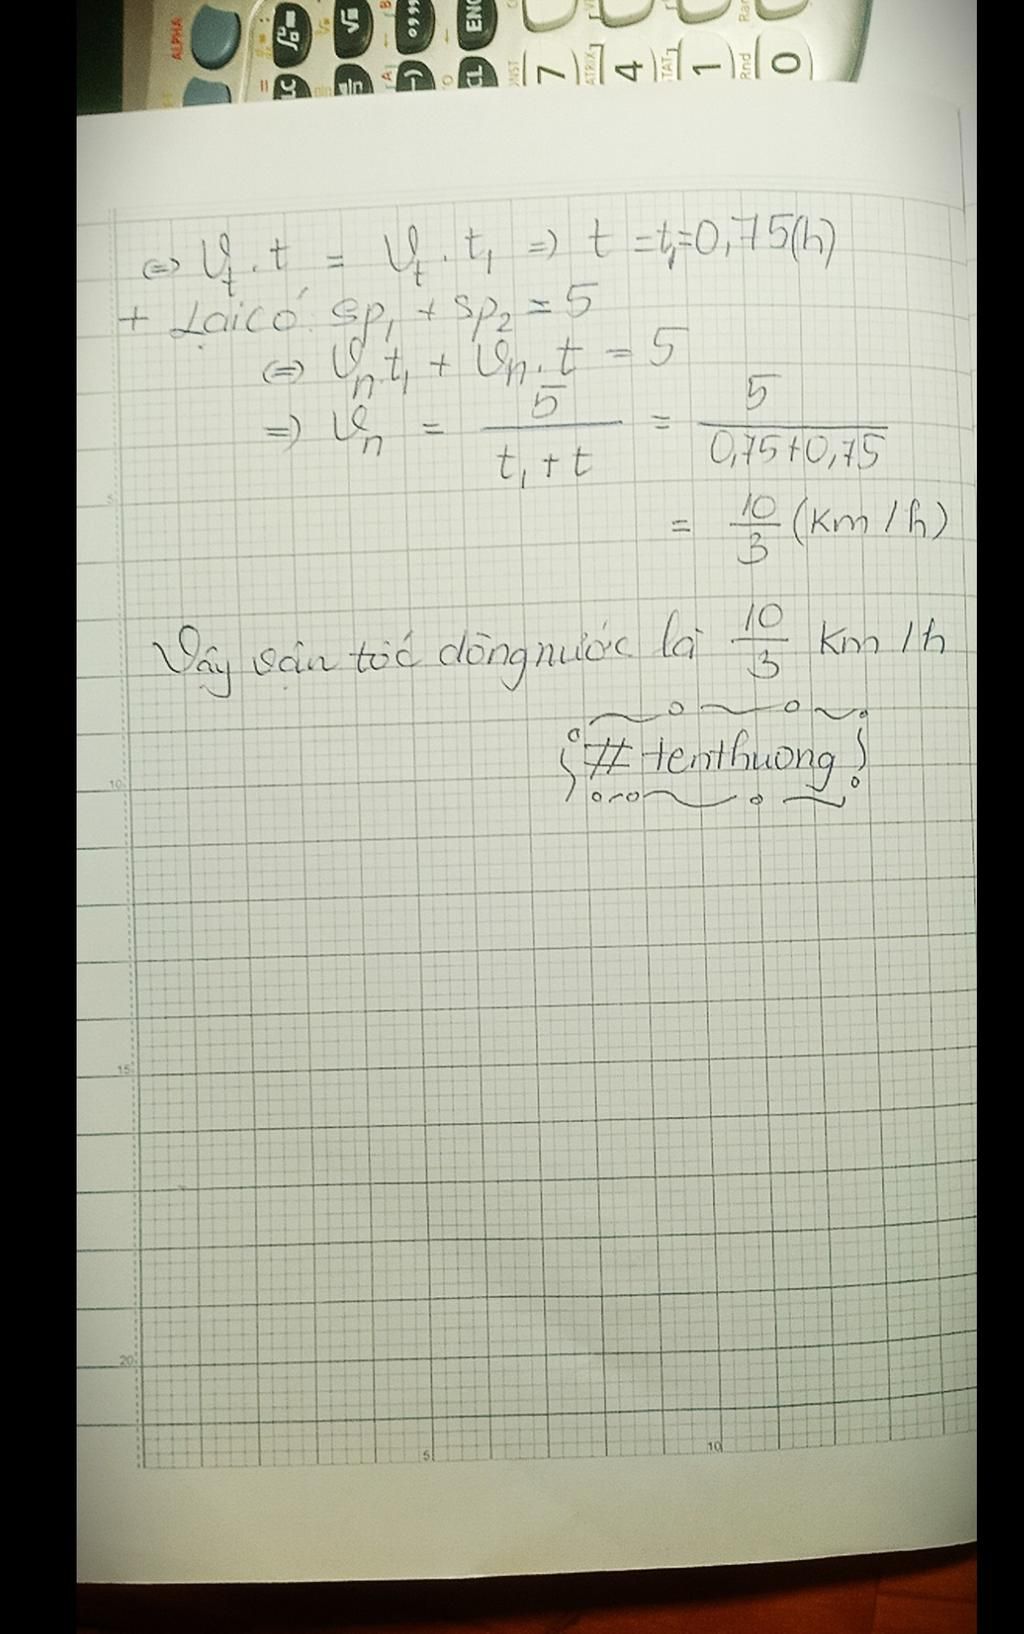 ALPHA
7
4
1
Rnd
0
⇔ Vt . t = Vt . t1 ⇒ t = t1 = 0,75(h)
+ Lại có sp1 + sp2 = 5
⇔ Vn.t1 + Vn.t = 5
⇒ Vn = 5 / (t1 + t) = 5 / (0,75+0,75)
= 10/3 (km/h)
Vậy vận tốc dòng nước là 10/3 km/h
# tenthuong
10
15
20
5
10